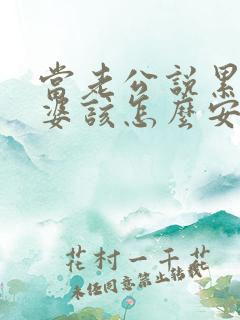 當老公說累
婆該怎麼安
花村一千花
未经同意禁止转载